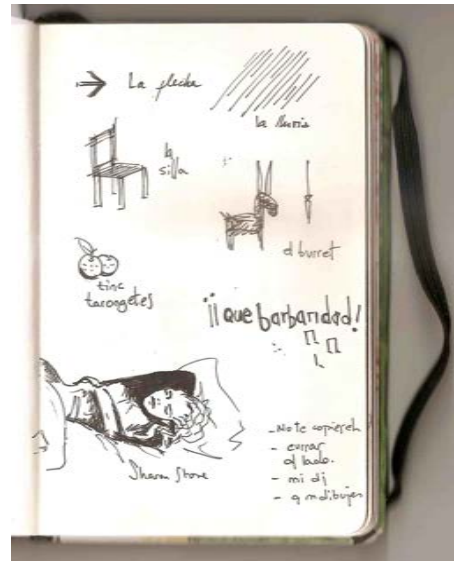 La flecha
la lluvia
la
silla
el burret
tinc
taroogetes
¡¡que barbaridad!
Sharon Stone
- No te copies eh
- currar
al lado.
- mi dj
- q m dibujen